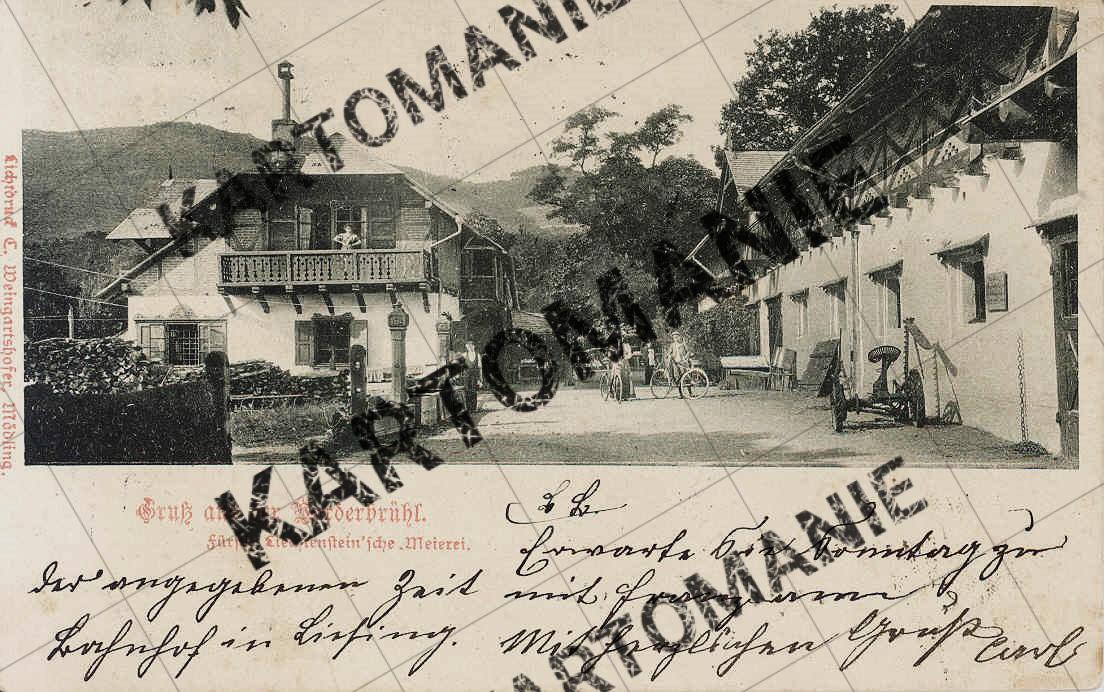 KARTOMANIE
KARTOMANIE
KARTOMANIE
KARTOMANIE
KARTOMANIE
Lichtdruck C. Weingartshofer, Mödling.
Gruß aus der Vorderbrühl.
Fürst Liechtenstein'sche Meierei.
Erwarte Sie Sonntag zu
der angegebenen Zeit mit
Bahnhof in Liesing. Mit herzlichen Gruß Carl